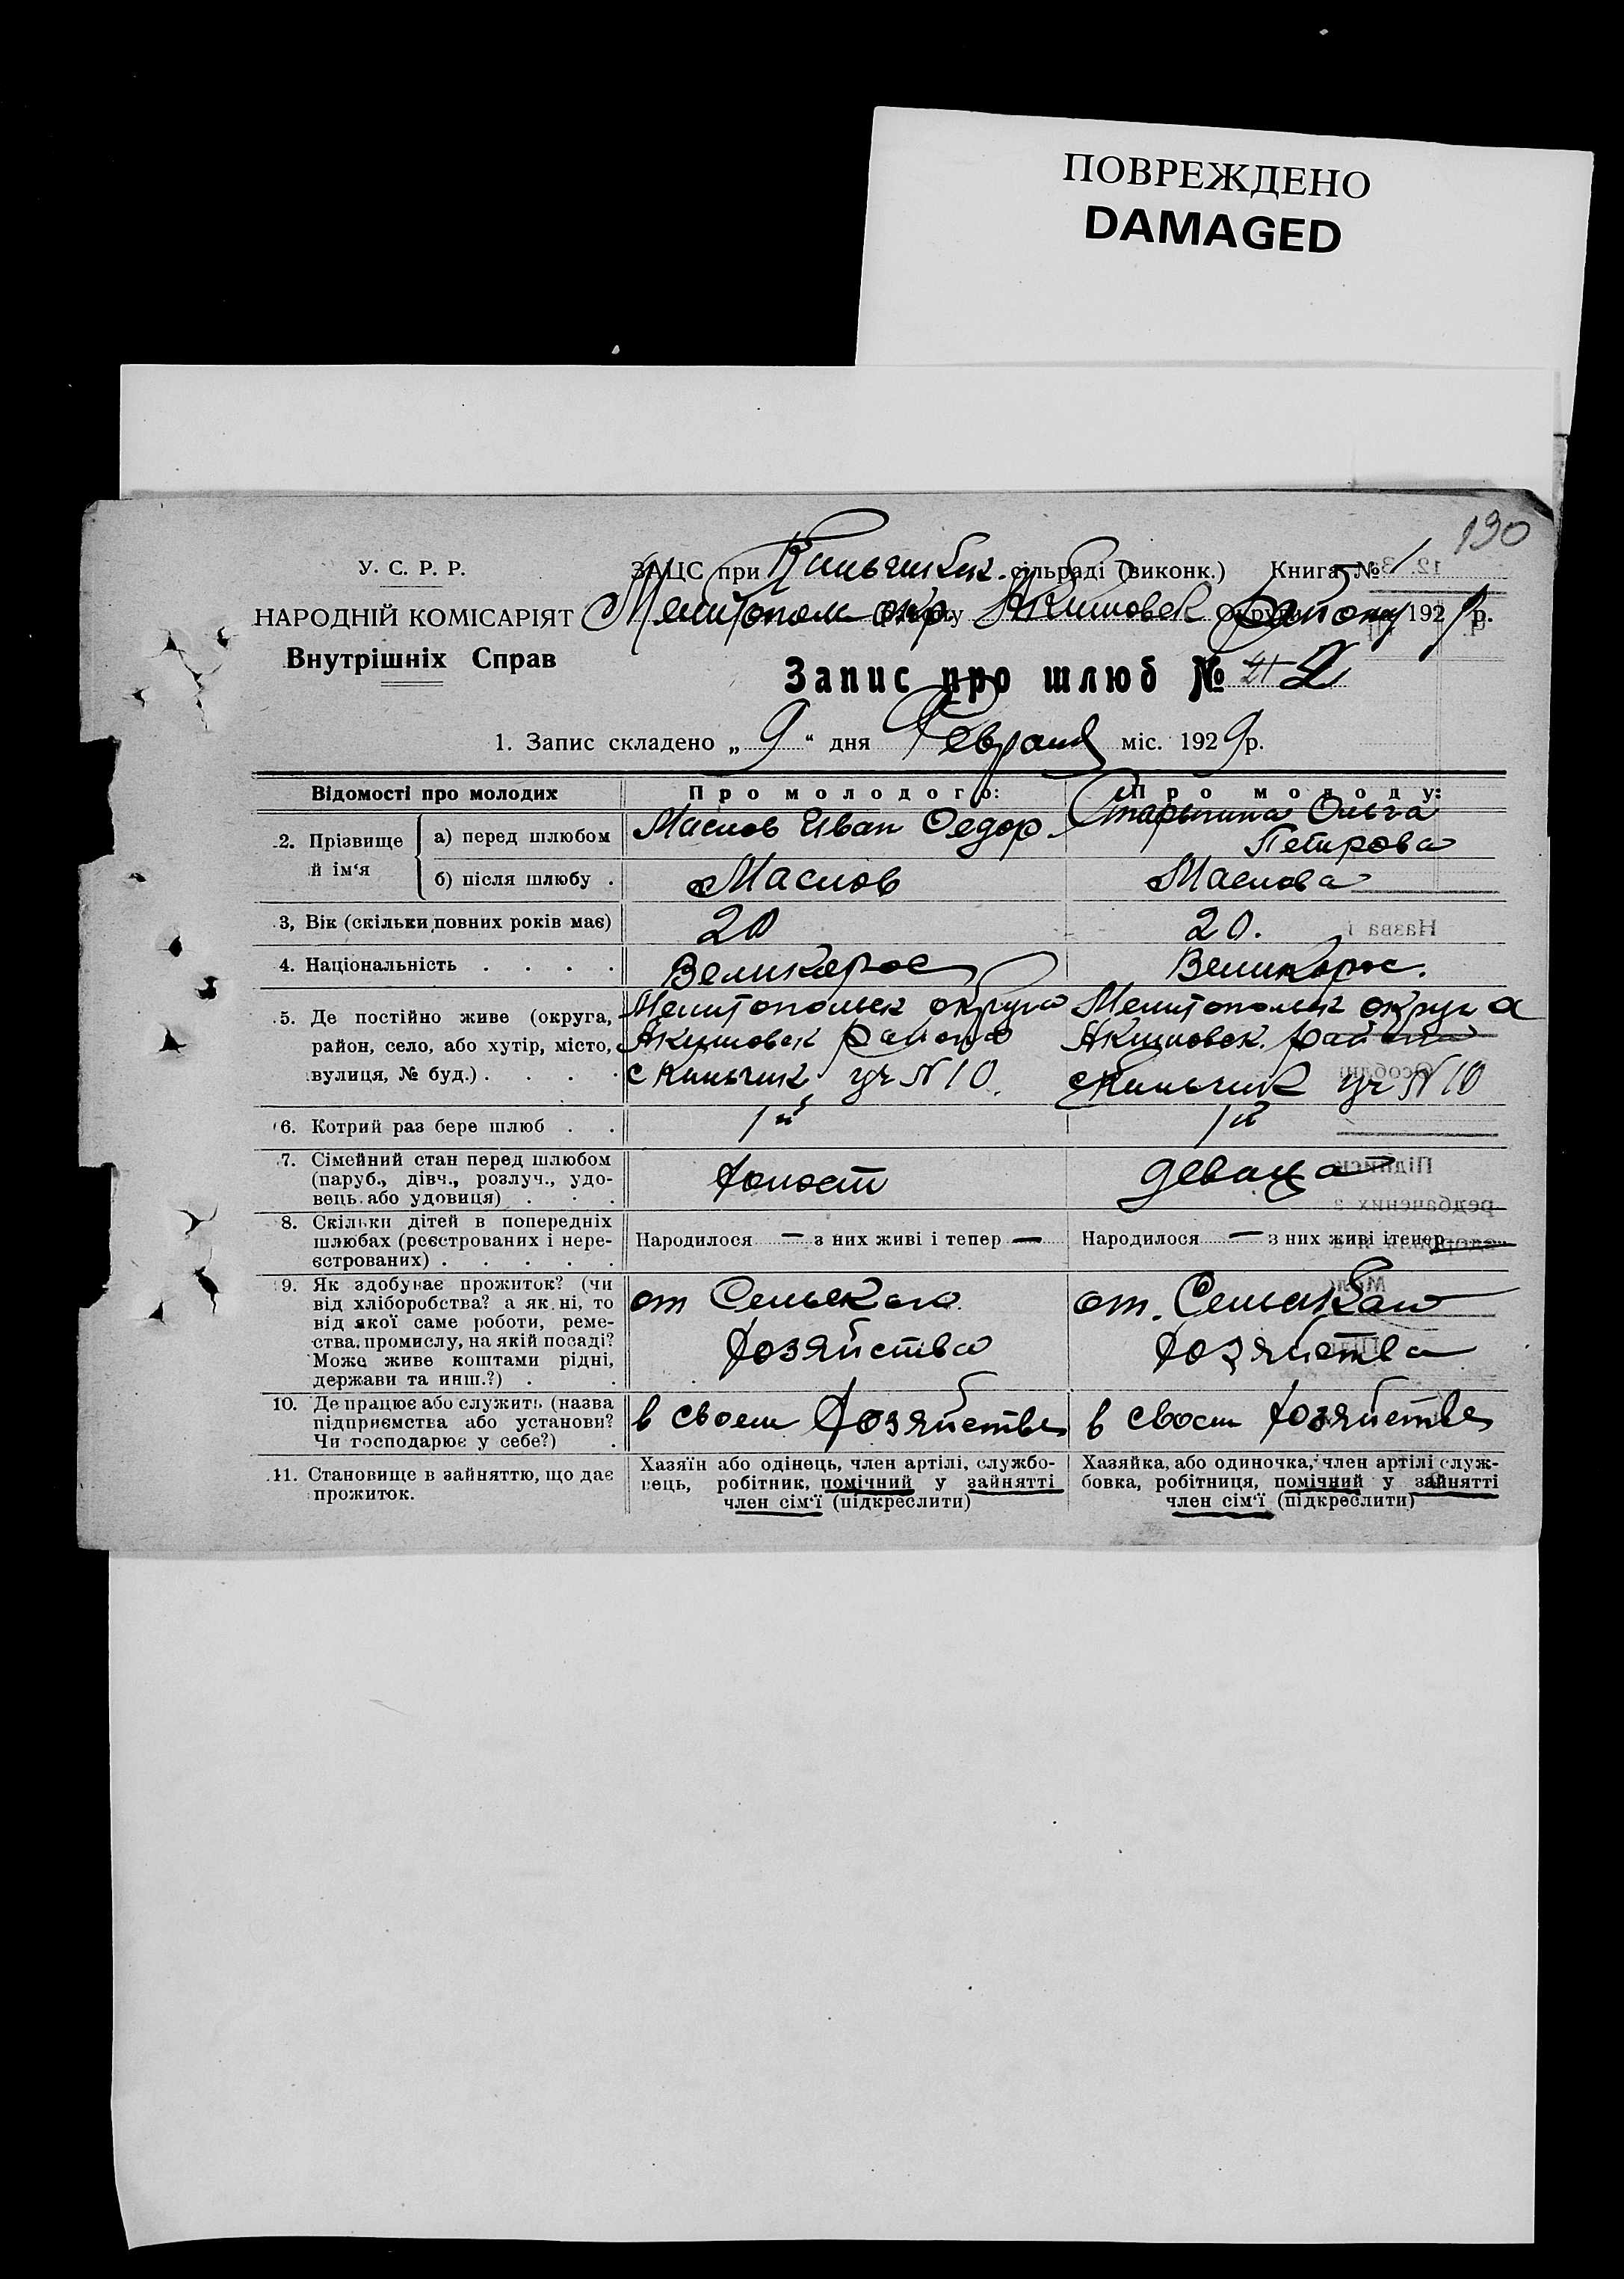 ПОВРЕЖДЕНО
DAMAGED
190
У. С. Р. Р.
ЗАЦС при сільраді (виконк.) Книга № 1
НАРОДНІЙ КОМІСАРІЯТ
Мелитопол окр Акимовск району 1929 р.
Внутрішніх Справ
Запис про шлюб № 2
1. Запис складено „ 9 “ дня Февраля міс. 1929 р.
Відомості про молодих Про молодого: Про молоду:
2. Прізвище й ім‘я
а) перед шлюбом Маслов Иван Федор. Ольга
Петрова
б) після шлюбу . Маслов Маслова
3, Вік (скільки повних років має) 20 20.
4. Національність . . . . Великорос Великорос.
5. Де постійно живе (округа, Мелитопольск округа Мелитопольск округа
район, село, або хутір, місто, Акимовск района Акимовск. района
вулиця, № буд.) . . . . с уч N 10. с уч N 10
6. Котрий раз бере шлюб . . 1й 1й
7. Сімейний стан перед шлюбом
(паруб., дівч., розлуч., удо- Холост девица
вець або удовиця) . . .
8. Скільки дітей в попередніх
шлюбах (реєстрованих і нере- Народилося — з них живі і тепер — Народилося — з них живі ітепер —
єстрованих) . . . . .
9. Як здобуває прожиток? (чи
від хліборобства? а як ні, то от Сельского от. Сельского
від якої саме роботи, реме-
ства, промислу, на якій посаді? Хозяйства Хозяйства
Може живе коштами рідні,
держави та инш.?) . .
10. Де працює або служить (назва
підприємства або установи? в своем Хозяйстве в своем Хозяйстве
Чи господарює у себе?) .
11. Становище в зайняттю, що дає Хазяїн або одінець, член артілі, службо- Хазяйка, або одиночка, член артілі служ-
прожиток. вець, робітник, помічний у зайнятті бовка, робітниця, помічний у зайнятті
член сім‘ї (підкреслити) член сім‘ї (підкреслити)